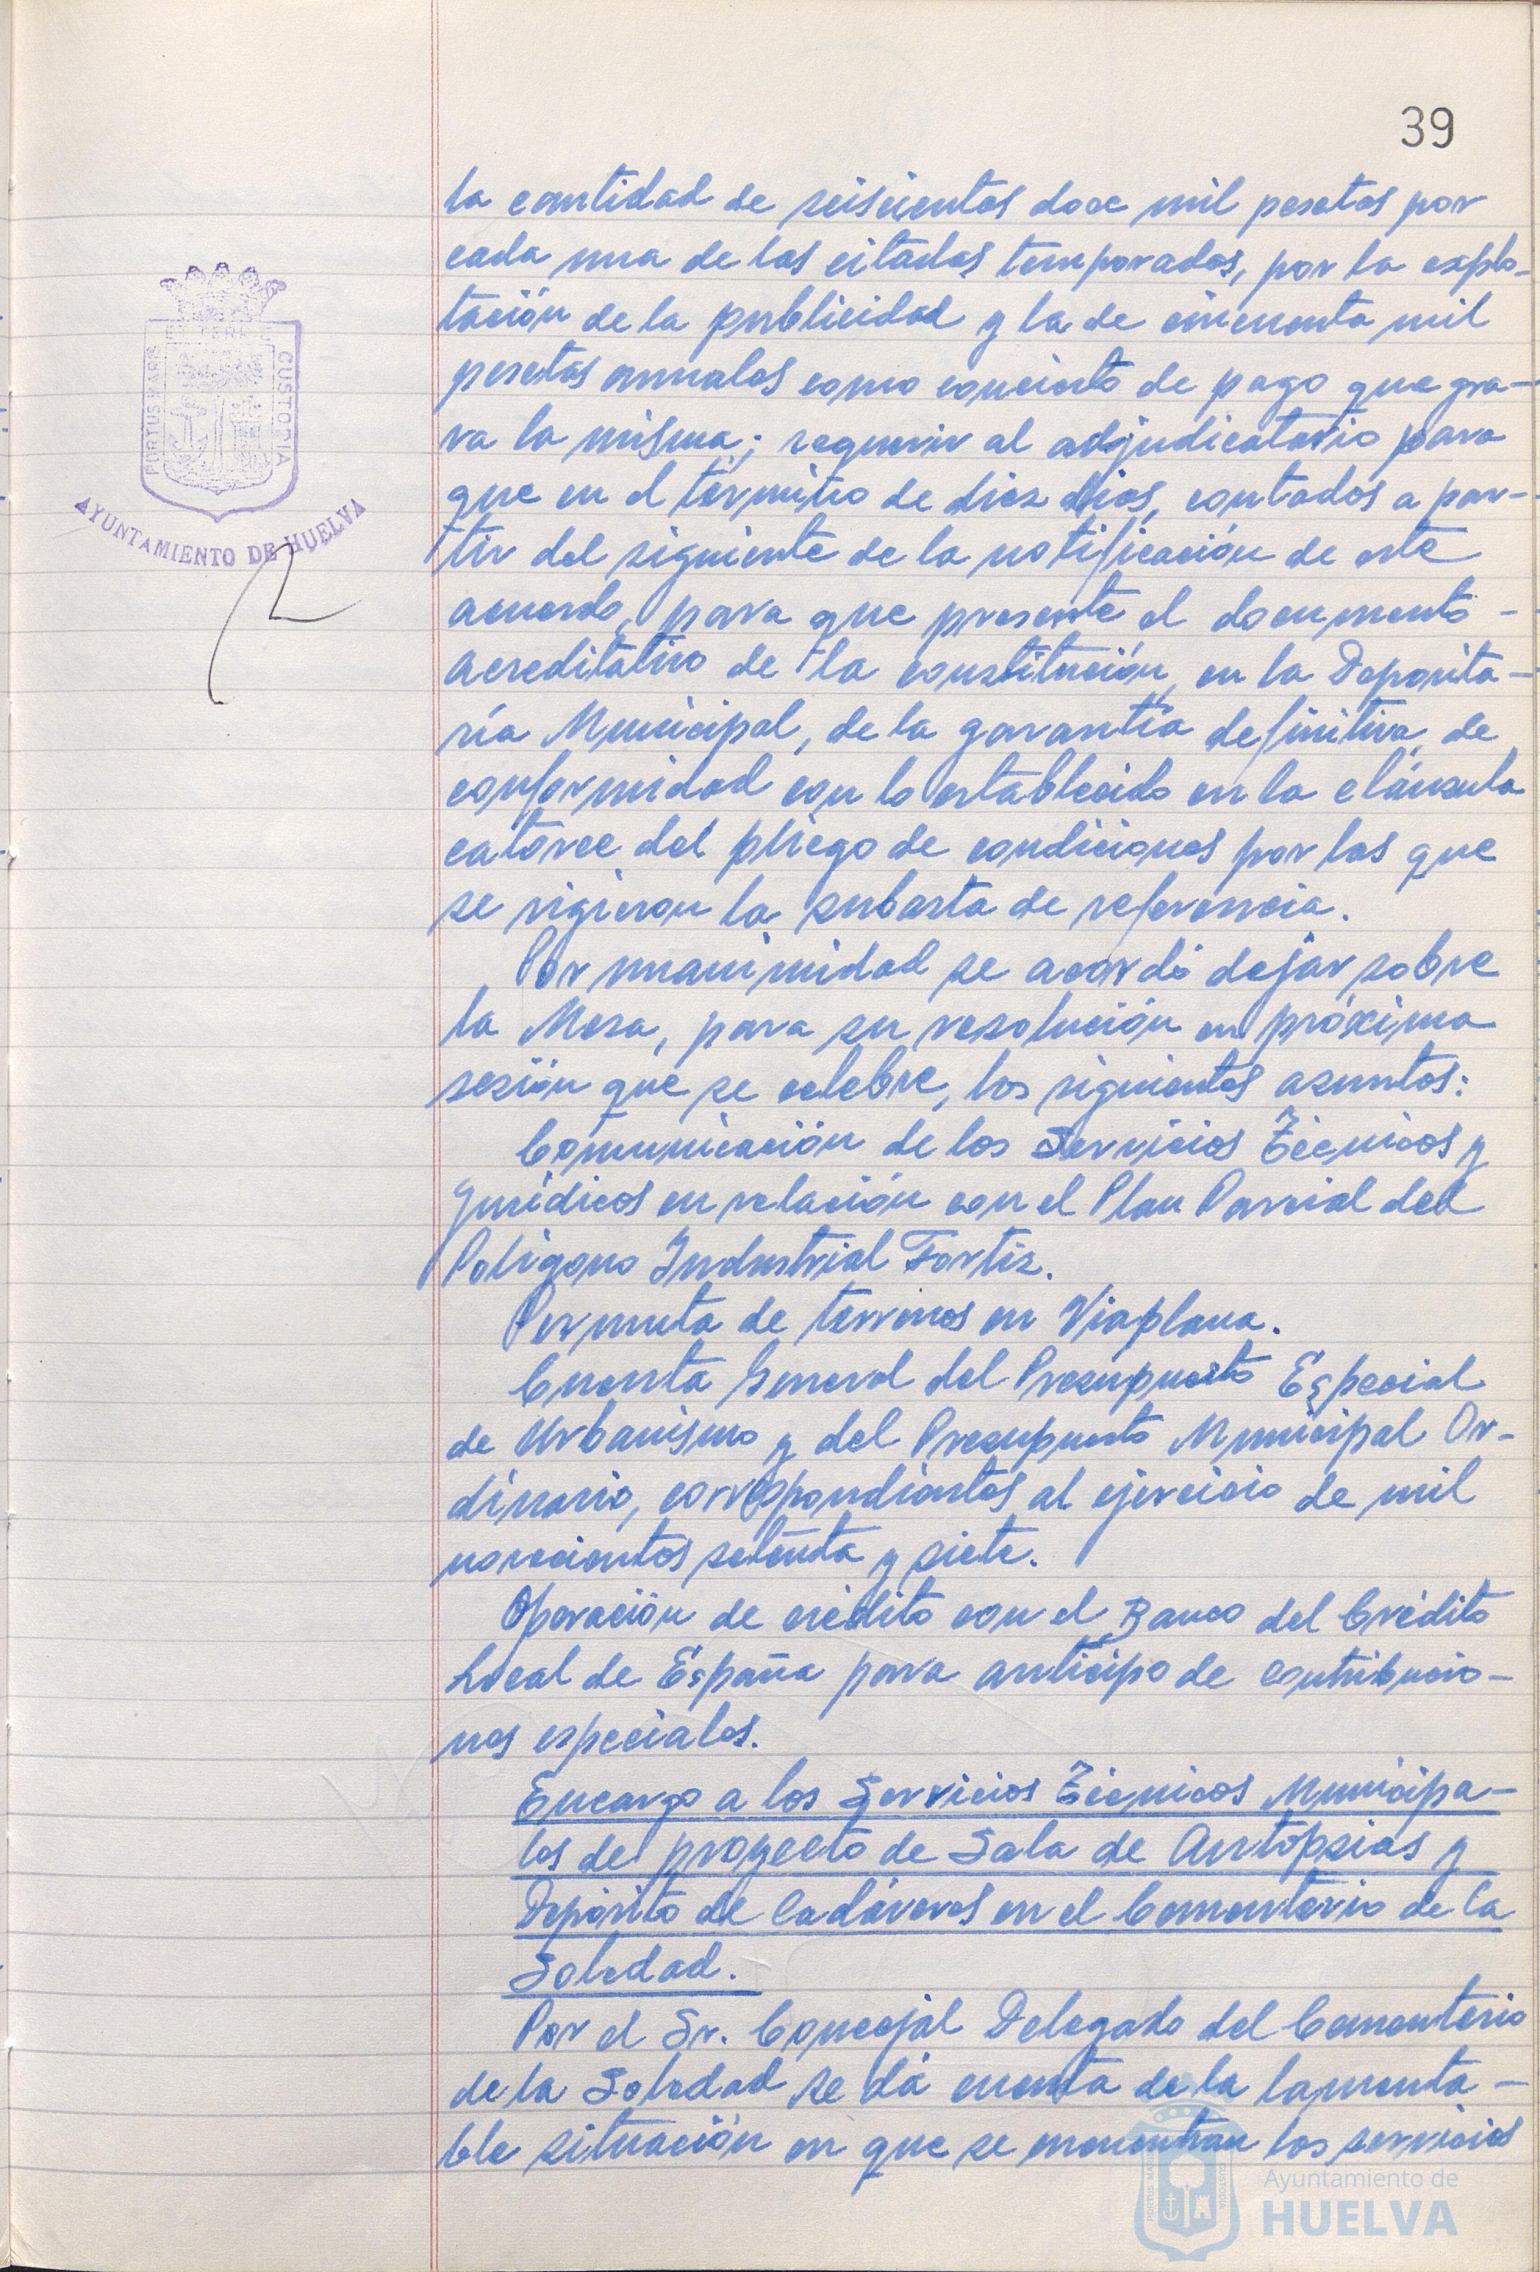 39
la cantidad de seiscientas doce mil pesetas por
cada una de las citadas temporadas, por la explo-
tación de la publicidad y la de cincuenta mil
pesetas anuales como concierto de pago que gra-
va la misma; requerir al adjudicatario para
que en el término de diez dias, contados a par-
tir del siguiente de la notificación de este
acuerdo, para que presente el documento -
acreditativo de la constitución, en la Deposita-
ría Municipal, de la garantía definitiva, de
conformidad con lo establecido en la cláusula
catorce del pliego de condiciones por las que
se rigieron la subasta de referencia.
Por unanimidad se acordó dejar sobre
la Mesa, para su resolución en próxima
sesión que se celebre, los siguientes asuntos:
Comunicación de los Servicios Técnicos y
Jurídicos en relación con el Plan Parcial del
Polígono Industrial Fortiz.
Permuta de terrenos en Viaplana.
Cuenta General del Presupuesto Especial
de Urbanismo y del Presupuesto Municipal Or-
dinario, correspondientes al ejercicio de mil
novecientos setenta y siete.
Operación de crédito con el Banco del Crédito
Local de España para anticipo de contribucio-
nes especiales.
Encargo a los Servicios Técnicos Municipa-
les del proyecto de Sala de Autopsias y
Depósito de Cadáveres en el Cementerio de la
Soledad.
Por el Sr. Concejal Delegado del Cementerio
de la Soledad se dá cuenta de la lamenta-
ble situación en que se encuentran los servicios
PORTUS MARIS
CUSTODIA
AYUNTAMIENTO DE HUELVA
Ayuntamiento de
HUELVA